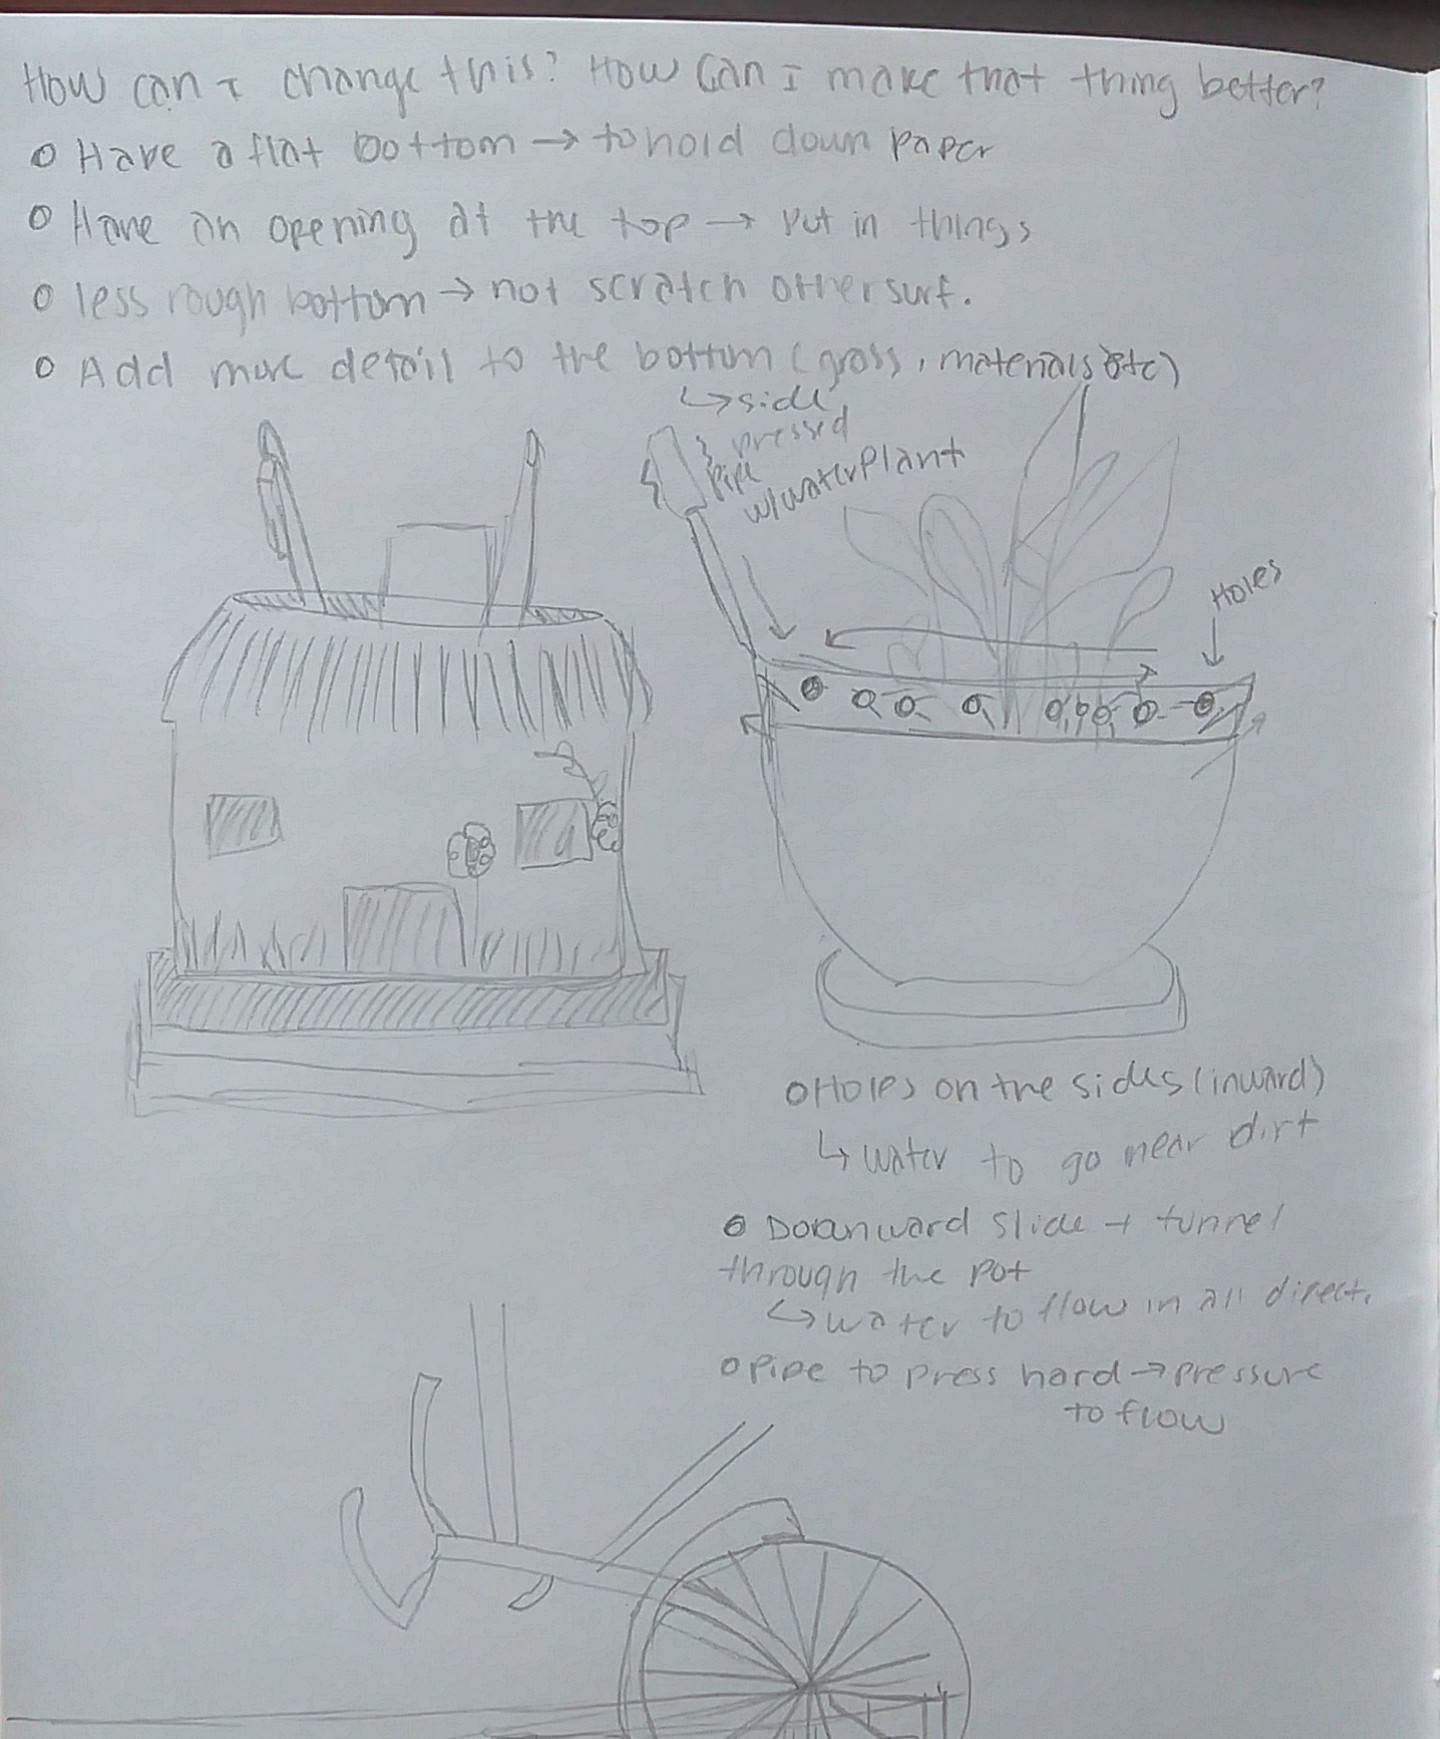 How can I change this? How can I make that thing better?
o Have a flat bottom → to hold down paper
o Have an opening at the top → put in things
o less rough bottom → not scratch other surf.
o Add more detail to the bottom (grass, materials etc)
↳ side
pressed
Pipe
w/water
Plant
Holes
o Holes on the sides (inward)
↳ water to go near dirt
o Downward slide + tunnel
through the pot
↳ water to flow in all direct.
o Pipe to press hard → pressure
to flow